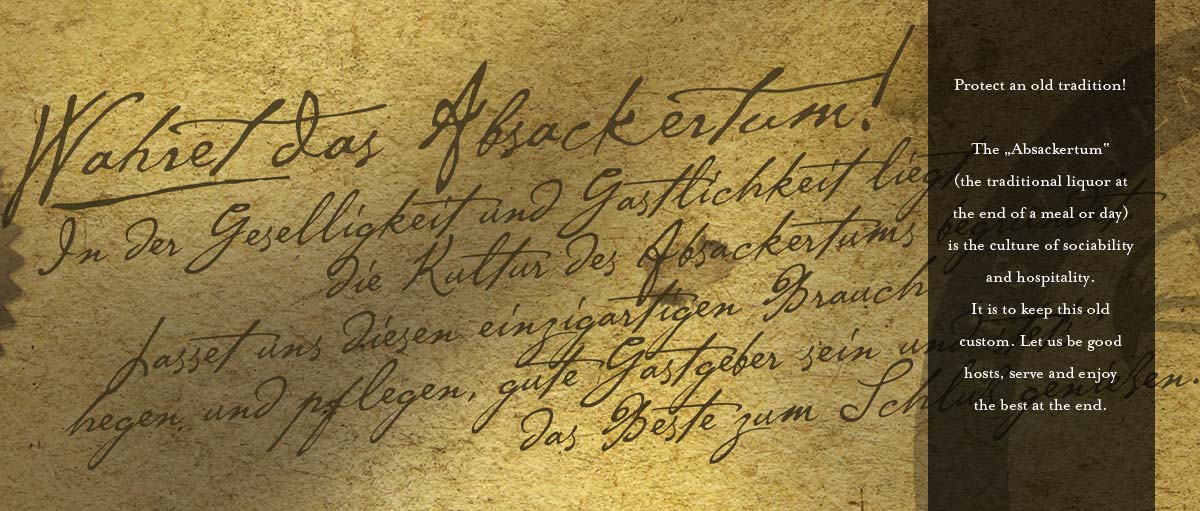 Wahret das Absackertum!
In der Geselligkeit und Gastlichkeit liegt
die Kultur des Absackertums begründet.
Lasset uns diesen einzigartigen Brauch
hegen und pflegen, gute Gastgeber sein und stets
das Beste zum Schluss genießen.
Protect an old tradition!
The „Absackertum“
(the traditional liquor at
the end of a meal or day)
is the culture of sociability
and hospitality.
It is to keep this old
custom. Let us be good
hosts, serve and enjoy
the best at the end.